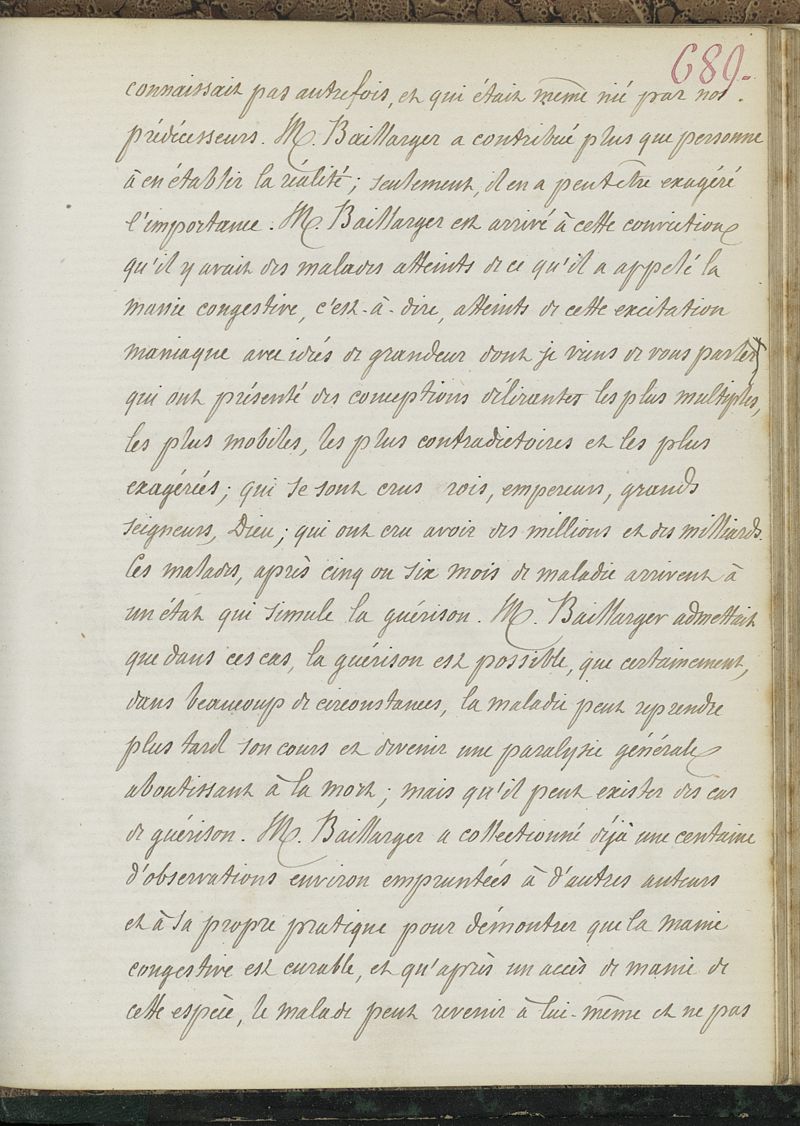 689.
connaissait pas autrefois, et qui était même nié par nos
prédécesseurs. M. Baillarger a contribué plus que personne
à en établir la réalité; seulement, il en a peut être exagéré
l'importance. M. Baillarger est arrivé à cette conviction
qu'il y avait des malades atteints de ce qu'il a appelé la
manie congestive, c'est-à-dire, atteints de cette excitation
maniaque avec idées de grandeur dont je viens de vous parler)
qui ont présenté des conceptions délirantes les plus multiples,
les plus mobiles, les plus contradictoires et les plus
exagérées; qui se sont crus rois, empereurs, grands
seigneurs, Dieu; qui ont cru avoir des millions et des milliards.
Ces malades, après cinq ou six mois de maladie arrivent à
un état qui simule la guérison. M. Baillarger admettait
que dans ces cas, la guérison est possible, que certainement,
dans beaucoup de circonstances, la maladie peut reprendre
plus tard son cours et devenir une paralysie générale
aboutissant à la mort; mais qu'il peut exister des cas
de guérison. M. Baillarger a collectionné déjà une centaine
d'observations environ empruntées à d'autres auteurs
et à sa propre pratique pour démontrer que la manie
congestive est curable, et qu'après un accès de manie de
cette espèce, le malade peut revenir à lui-même et ne pas